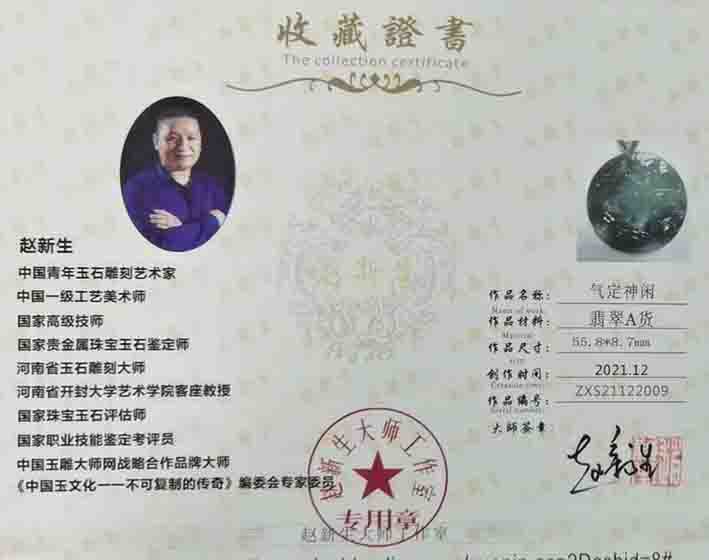 收藏證書
The collection certificate
赵新生
中国青年玉石雕刻艺术家
中国一级工艺美术师
国家高级技师
国家贵金属珠宝玉石鉴定师
河南省玉石雕刻大师
河南省开封大学艺术学院客座教授
国家珠宝玉石评估师
国家职业技能鉴定考评员
中国玉雕大师网战略合作品牌大师
《中国玉文化一一不可复制的传奇》编委会专家委员
作品名称: 气定神闲
Name of work
作品材料: 翡翠A货
Material
作品尺寸: 55.8*8.7mm
size
创作时间: 2021.12
作品编号: ZXS21122009
Serial number
大师签章:
赵新生大师工作室
专用章
赵新生大师工作室